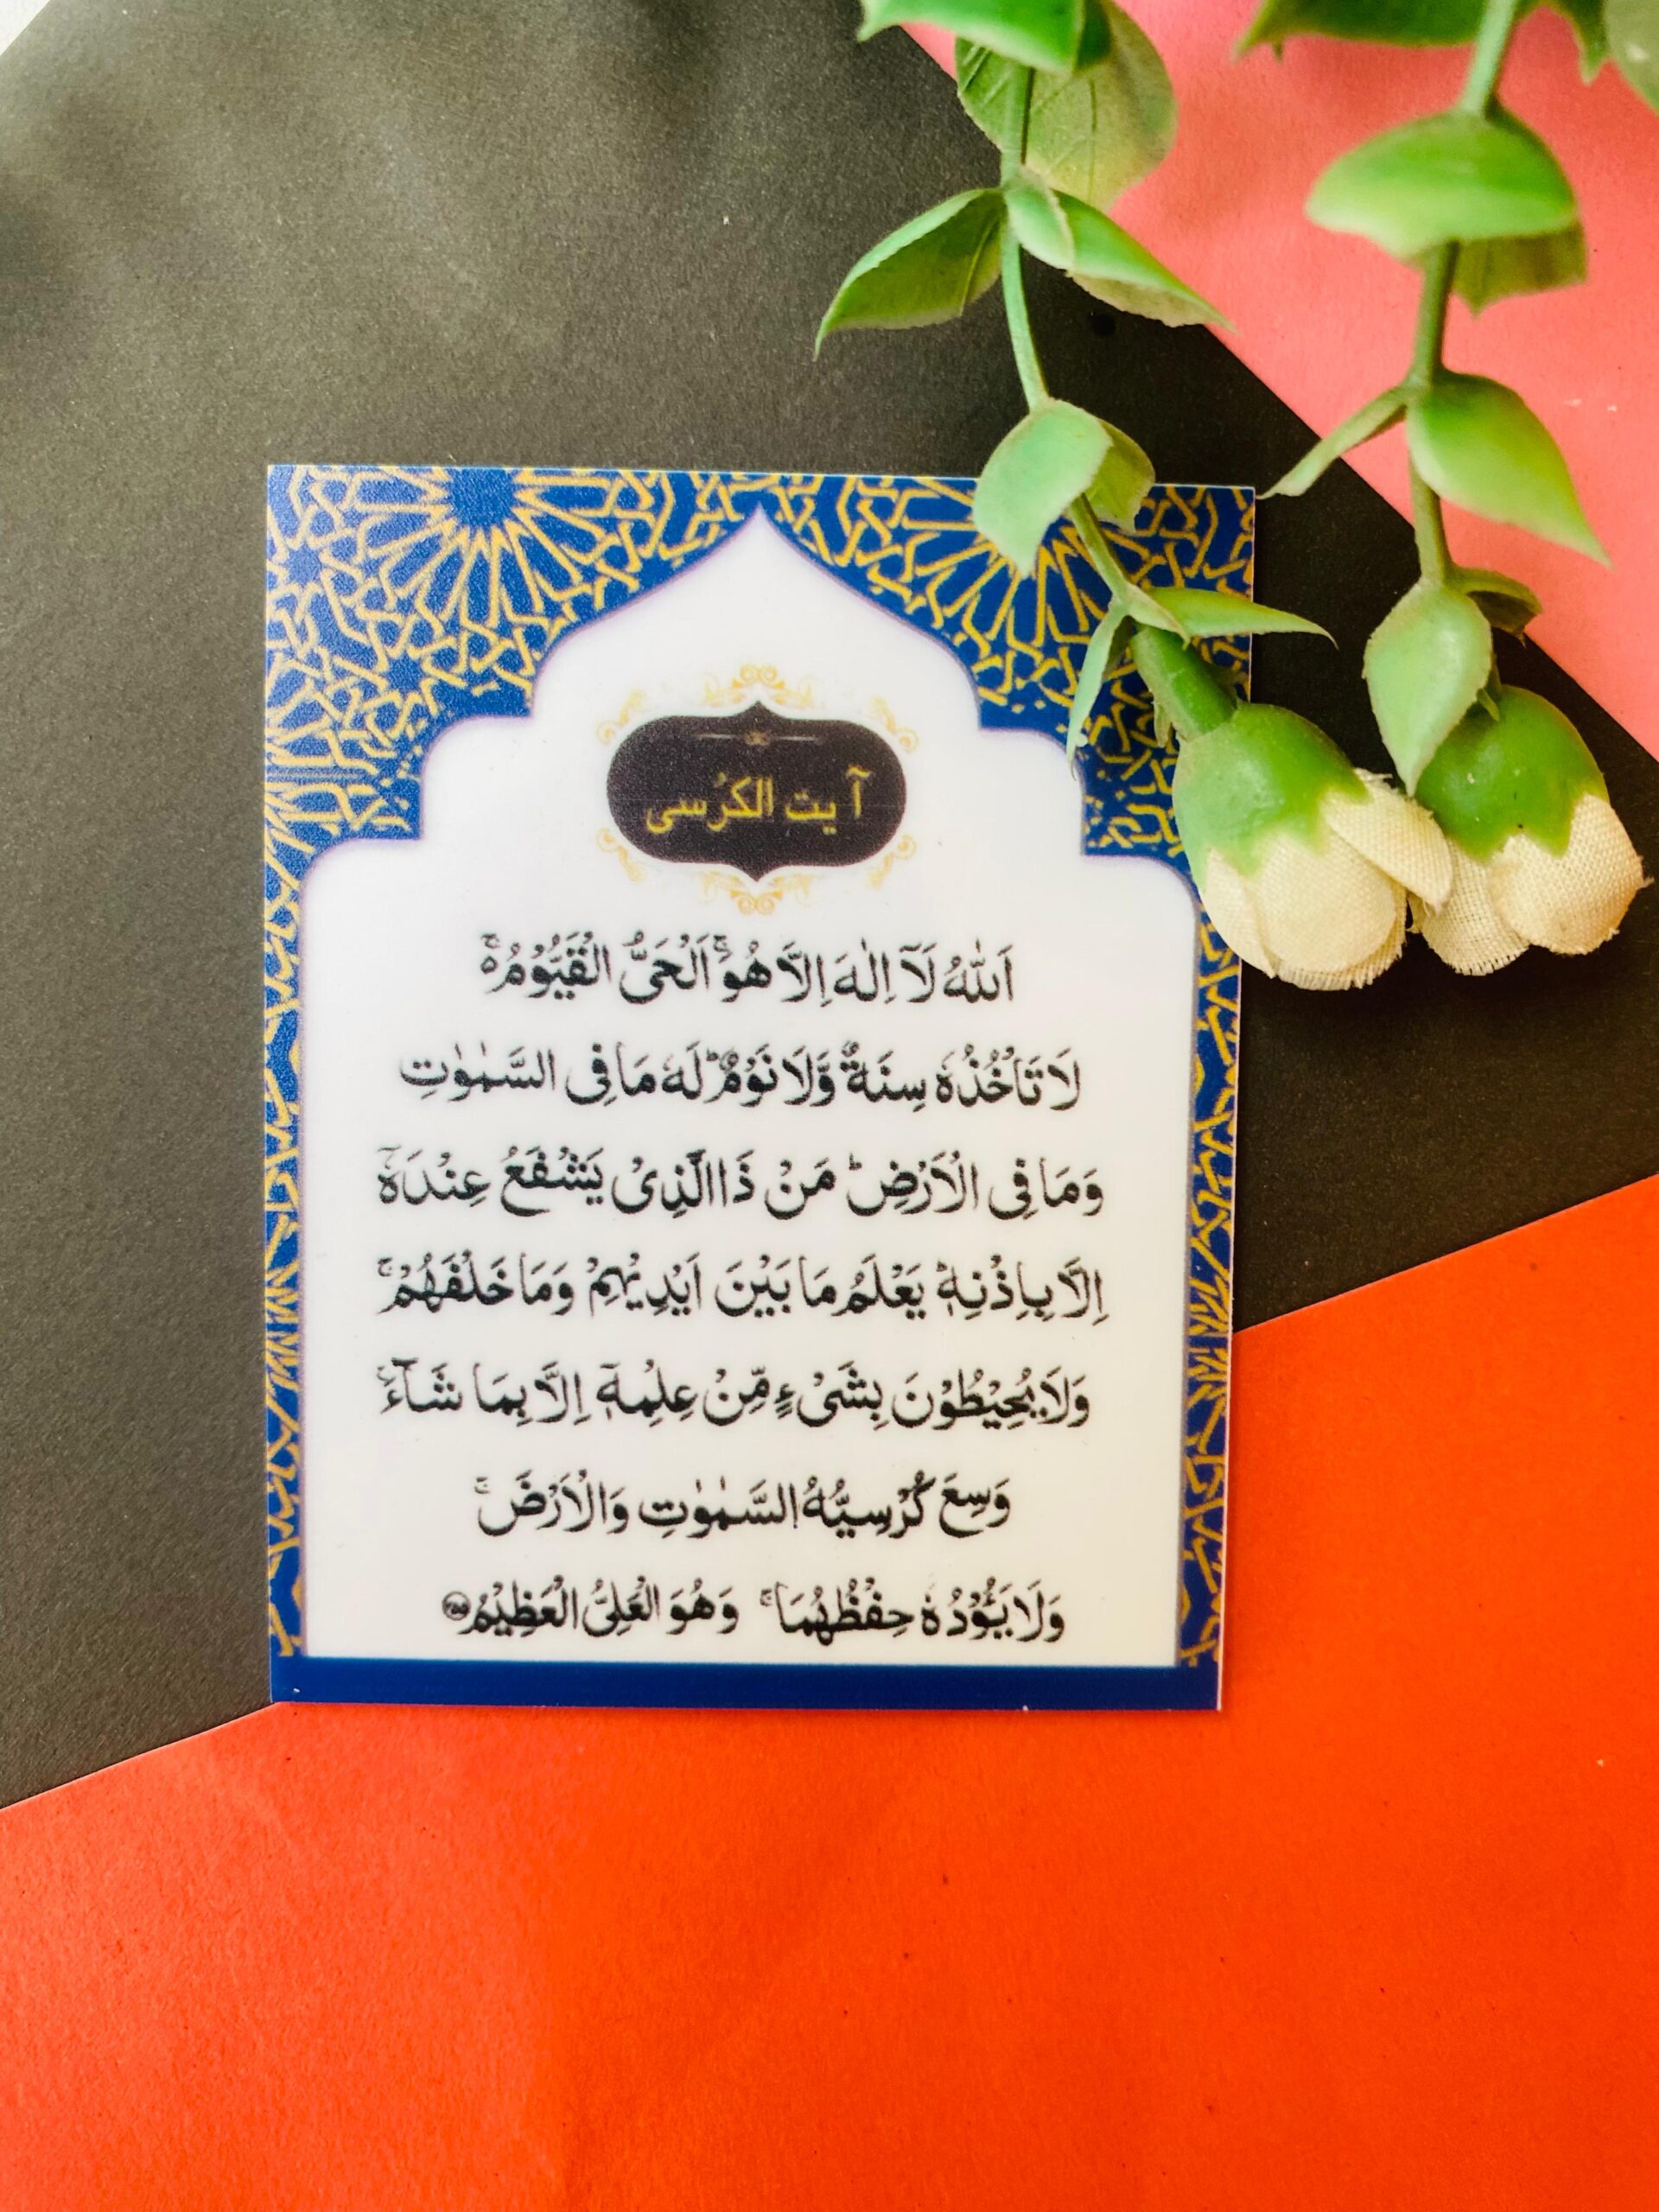 آیت الکرُسی
اَللّٰهُ لَاۤ اِلٰهَ اِلَّا هُوَ ۚ اَلْحَیُّ الْقَیُّوْمُ ۚ۬
لَا تَاْخُذُهٗ سِنَةٌ وَّلَا نَوْمٌ ؕ لَهٗ مَا فِی السَّمٰوٰتِ
وَمَا فِی الْاَرْضِ ؕ مَنْ ذَا الَّذِیْ یَشْفَعُ عِنْدَهٗۤ
اِلَّا بِاِذْنِهٖ ؕ یَعْلَمُ مَا بَیْنَ اَیْدِیْهِمْ وَمَا خَلْفَهُمْ ۚ
وَلَا یُحِیْطُوْنَ بِشَیْءٍ مِّنْ عِلْمِهٖۤ اِلَّا بِمَا شَآءَ ۚ
وَسِعَ كُرْسِیُّهُ السَّمٰوٰتِ وَالْاَرْضَ ۚ
وَلَا یَـُٔوْدُهٗ حِفْظُهُمَا ۚ وَهُوَ الْعَلِیُّ الْعَظِیْمُ ۝۲۵۵